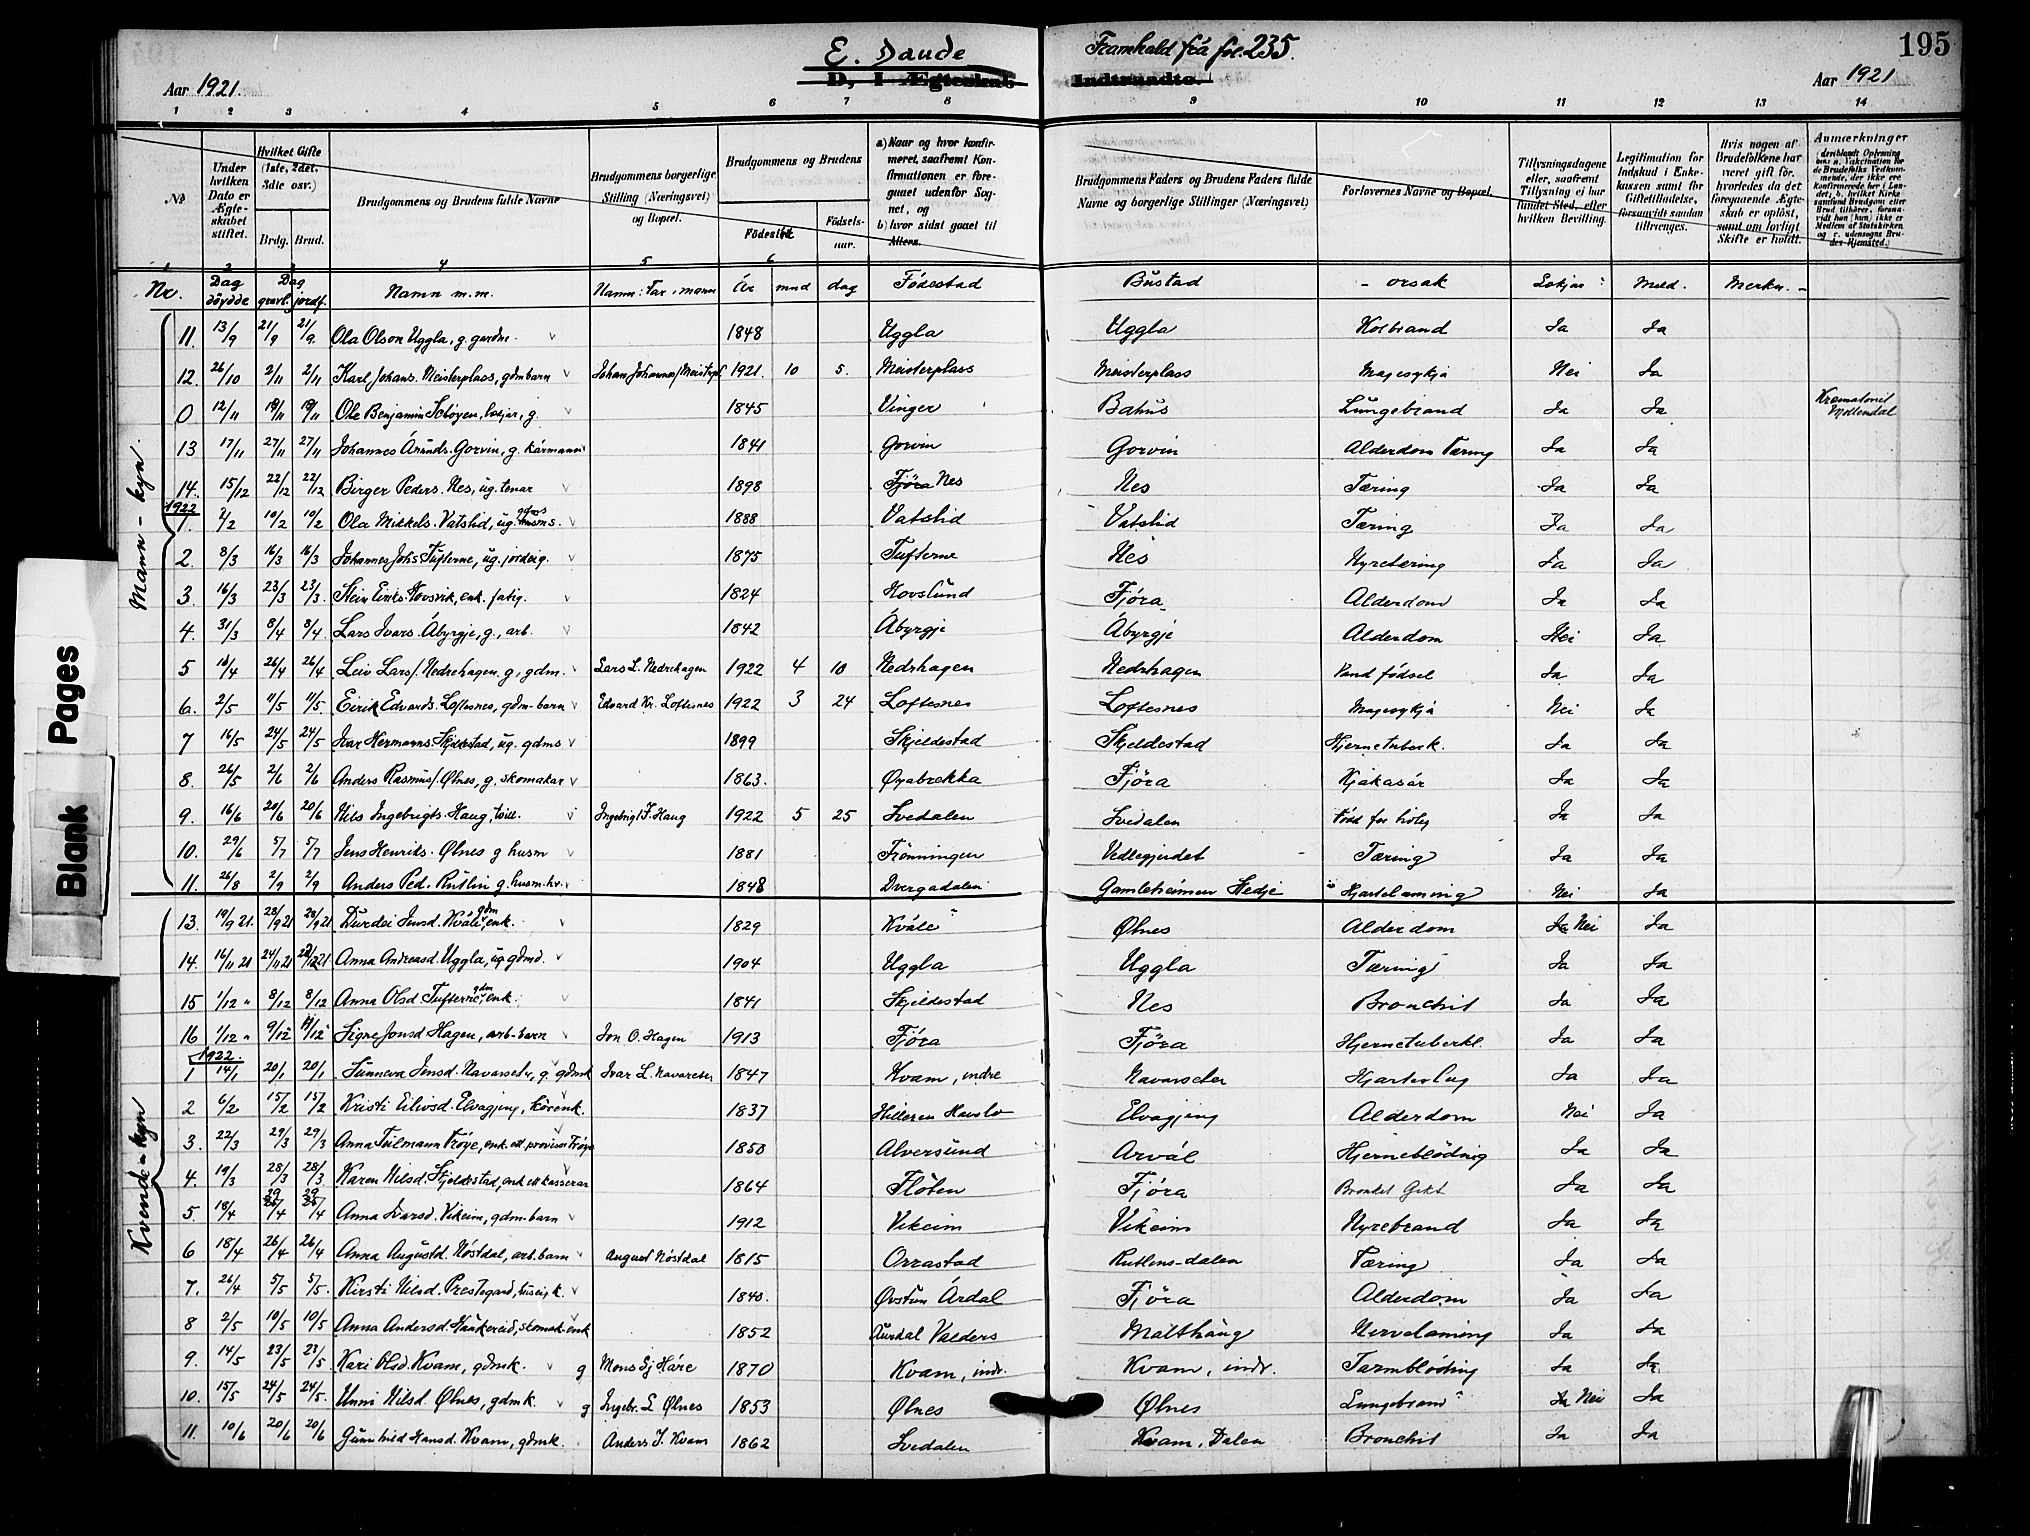 E. Daude Framhald frå fol. 235. 195
Aar 1921. D, I Ægteskab Indtraadte. Aar 1921
1 2 3 4 5 6 7 8 9 10 11 12 13 14
Under hvilken Dato er Ægteskabet stiftet.
Hvilket Gifte (1ste, 2det, 3die osv.)
Brdg. Brud.
Brudgommens og Brudens fulde Navne
Brudgommens borgerlige Stilling (Næringsvei) og Bopæl.
Brudgommens og Brudens
Fødested Fødselsaar.
a) Naar og hvor konfirmeret, saafremt Konfirmationen er foregaaet udenfor Sognet, og
b) hvor sidst gaaet til Alters.
Brudgommens Faders og Brudens Faders fulde Navne og borgerlige Stillinger (Næringsvei)
Forlovernes Navne og Bopæl.
Tillysningsdagene eller, saafremt Tillysning ei har fundet Sted, efter hvilken Bevilling.
Legitimation for Indskud i Enkekassen samt for Giftetilladelse, forsaavidt saadan tiltrænges.
Hvis nogen af Brudefolkene har været gift før, hvorledes da det foregaaende Ægteskab er opløst, samt om lovligt Skifte er holdt.
Anmærkninger
1 2 3 4 5 6
Nr. Dag döydde Dag gravl. jordf. Namn m.m. Namn: Far, mann År mnd dag Födestad Bustad - orsak Lækjar Meld. Merkn. -
Mann-kyn
11. 13/9 21/9 21/9 Ola Olson Uggla, g. gardm. 1848 Uggla Uggla Kolbrand Ja Ja
12. 26/10 2/11 2/11 Karl Johans. Meisterplass, gdmbarn 1921. 10 5. Meisterplass Meisterplass Magesykja Nei Ja
0 12/11 Ole Benjamin g. 1845 Vinger Bahus Lungebrand Ja Ja Krematoriet Möllendal
13 17/11 27/11 27/11 Johannes Ånunds. Gorvin, g. kårmann 1841 Gorvin Gorvin Alderdom Tæring Ja Ja
14. 15/12 22/12 22/12 Birger Peders. Nes, ug. tenar 1898 Fjöra Nes Nes Tæring Ja Ja
1922
1. 2/2 10/2 10/2 Ola Mikkels. Vatslid, ug. gdms 1888 Vatslid Vatslid Tæring Ja Ja
2. 8/3 16/3 16/3 Johannes Johs Tufterne, ug. jordeig. 1875 Tufterne Nes Nyretæring Ja Ja
3. 16/3 23/3 23/3. Stein Eiriks. Hovsvik, enk. fatig. 1824 Hovslund Fjöra Alderdom Ja Ja
4. 31/3 8/4 8/4. Lars Ivars. Åbyrgje, g., arb. 1842 Åbyrgje Åbyrgje Alderdom Nei Ja
5 26/4 26/4 Leiv Lars/. Nedrehagen, g, gdm. Lars L. Nedrehagen 1922 4 10 Nedrhagen Nedrhagen Vand födsel Ja Ja
6. 2/5 11/5 11/5. Eirik Edvards. Loftesnes, gdm-barn Edvard Kr. Loftesnes 1922 3 24 Loftesnes Loftesnes Magesykja Nei Ja
7 16/5 24/5 24/5 Ivar Hermanns. Skjeldestad, ug. gdms 1899 Skjeldestad Skjeldestad Hjernetuberk. Ja Ja
8. 26/5 2/6 2/6 Anders Rasmus/. Ølnes, g. skomakar 1863. Øyabrekka Fjöra Kjakasår Ja Ja
9. 16/6 20/6 20/6 Nils Ingebrigts. Haug, tvill. Ingebrigt J. Haug 1922 5 25 Svedalen Svedalen Född for tidleg Ja Ja
10. 29/6 5/7 5/7 Jens Henriks. Ølnes g husm 1881 Frönningen Vedlegjerdet Tæring Ja Ja
11. 26/8 2/9 2/9 Anders Ped. Rutlin g. husm. 1848 Dvergadalen Gamleheimen Stedje Hjartelamming Nei Ja
Kvende-kyn
13. 19/9 21. 28/9 21 28/9 21 Durdei Jensd. Kvåle gdm enk. 1829 Kvåle Ølnes Alderdom Ja Nei Ja
14. 16/11 21 24/11 21 Anna Andreasd. Uggla, ug gdmd. 1904 Uggla Uggla Tæring Ja Ja
15 1/12 " 8/12 8/12 Anna Olsd. Tufterne, gdm enk. 1841 Skjeldestad Nes Bronchit Ja Ja
16 1/12 " 9/12 Signe Jonsd Hagen, arb-barn Jon O. Hagen 1913 Fjöra Fjöra Hjernetuberkl. Ja Ja
1922.
1 14/1 20/1 20/1 Sunneva Jensd. Navarseter, g. gdmk Ivar L. Navarseter 1847 Kvam, indre Navarseter Hjarteslag Ja Ja
2 6/2 15/2 15/2 Kristi Eilivsd. Elvagjeng, kårenk. 1837 Hilleren Havslo Elvagjeng Alderdom Nei Ja
3. 22/3 29/3 29/3 Anna Teilmann Fröye, enk. ett. provisor Fröye 1850 Alversund Arvål Hjerneblödnig Ja Ja
4. 19/3 28/3 28/3. Karen Nilsd. Skjeldestad, enk ett kasserar 1864 Flöten Fjöra Bronkit Gikt Ja Ja
5. 18/4 29 26/4 29 26/4 Anna Ivarsd. Vikeim, gdm-barn 1912 Vikeim Vikeim Nyrebrand Ja Ja
6 18/4 26/4 26/4 Anna Augustd. Nöstdal, arb. barn August Nöstdal 1815 Orrastad Rutlens-dalen Tæring Ja Ja
7. 26/4 5/5 5/5. Kirsti Nilsd. Prestegard, huseigk. 1840. Øvstun Årdal Fjöra Alderdom Ja Ja
8 2/5 10/5 10/5 Anna Andersd. Haukereid, skomak-enk 1852 Aurdal Valders Malthaug Nervelaming Ja Ja
9. 14/5 23/5 23/5 Kari Olsd. Kvam, gdmk. g Mons Sj Håre 1870 Kvam, indr. Kvam, indr. Tarmblöding Ja Ja
10. 15/5 24/5 24/5. Unni Nilsd. Ølnes, gdmk. g Ingebr. L Ølnes 1853 Ølnes Ølnes Lungebrand Ja Nei Ja
11. 10/6 20/6 20/6 Gunnhild Hansd. Kvam, gdmk. Anders J. Kvam 1862 Svedalen Kvam, Dalen Bronchit Ja Ja
Blank Pages